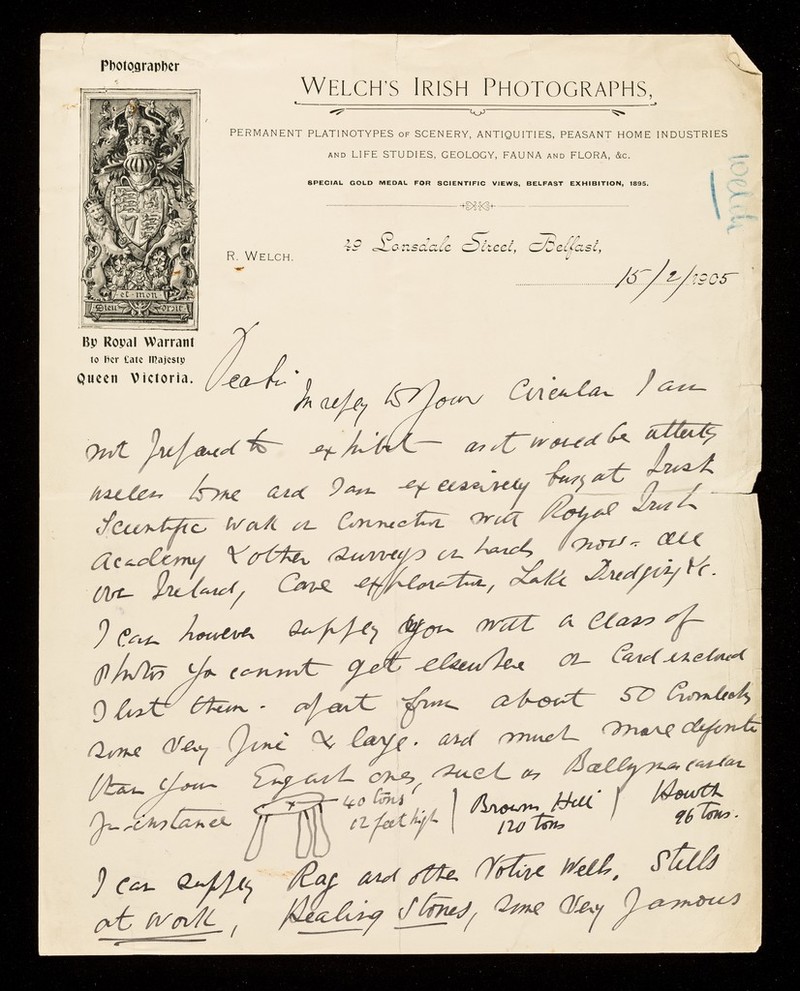 Photographer
WELCH'S IRISH PHOTOGRAPHS,
PERMANENT PLATINOTYPES OF SCENERY, ANTIQUITIES, PEASANT HOME INDUSTRIES
AND LIFE STUDIES, GEOLOGY, FAUNA AND FLORA, &C.
SPECIAL GOLD MEDAL FOR SCIENTIFIC VIEWS, BELFAST EXHIBITION, 1895.
Welch
R. WELCH.
49 Lonsdale Street, Belfast,
15/2/1905
et mon
Dieu Droit
By Royal Warrant
to her Late Majesty
Queen Victoria.
Dear Sir
In reply to your Circular I am
not prepared to exhibit as it would be utterly
useless to me and I am excessively busy at Irish
Scientific work in connection with Royal Irish
Academy & other surveys in hands now - all
over Ireland, Cave exploration, Lake Dredging &c.
I can however supply you with a class of
photos you cannot get elsewhere on Card enclosed
I list them - apart from about 50 Cromlechs
some very fine & large. and much more definite
than your English ones, such as Ballymascanlan
for instance 40 tons 12 feet high Brown Hill 120 tons Howth 96 tons.
I can supply Rag and other Votive Wells, Stills
at work, Healing Stones, some very famous